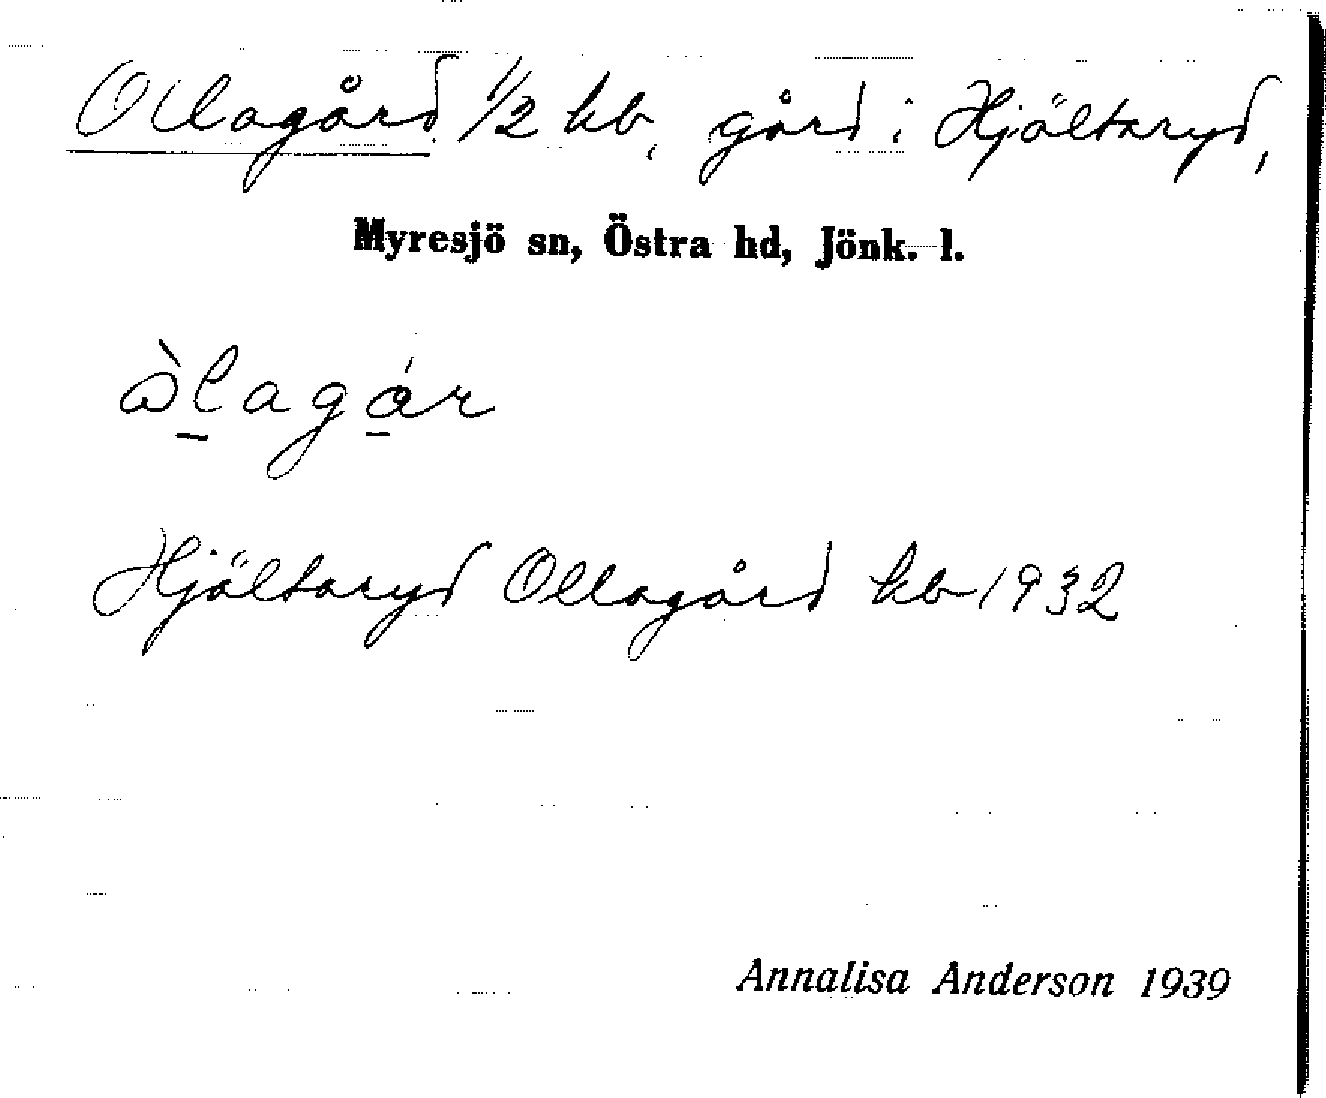 Ollagård 1/2 hb, gård i Hjältaryd,
Myresjö sn, Östra hd, Jönk. l.
Hjältaryd Ollagård kb 1932
Annalisa Anderson 1939